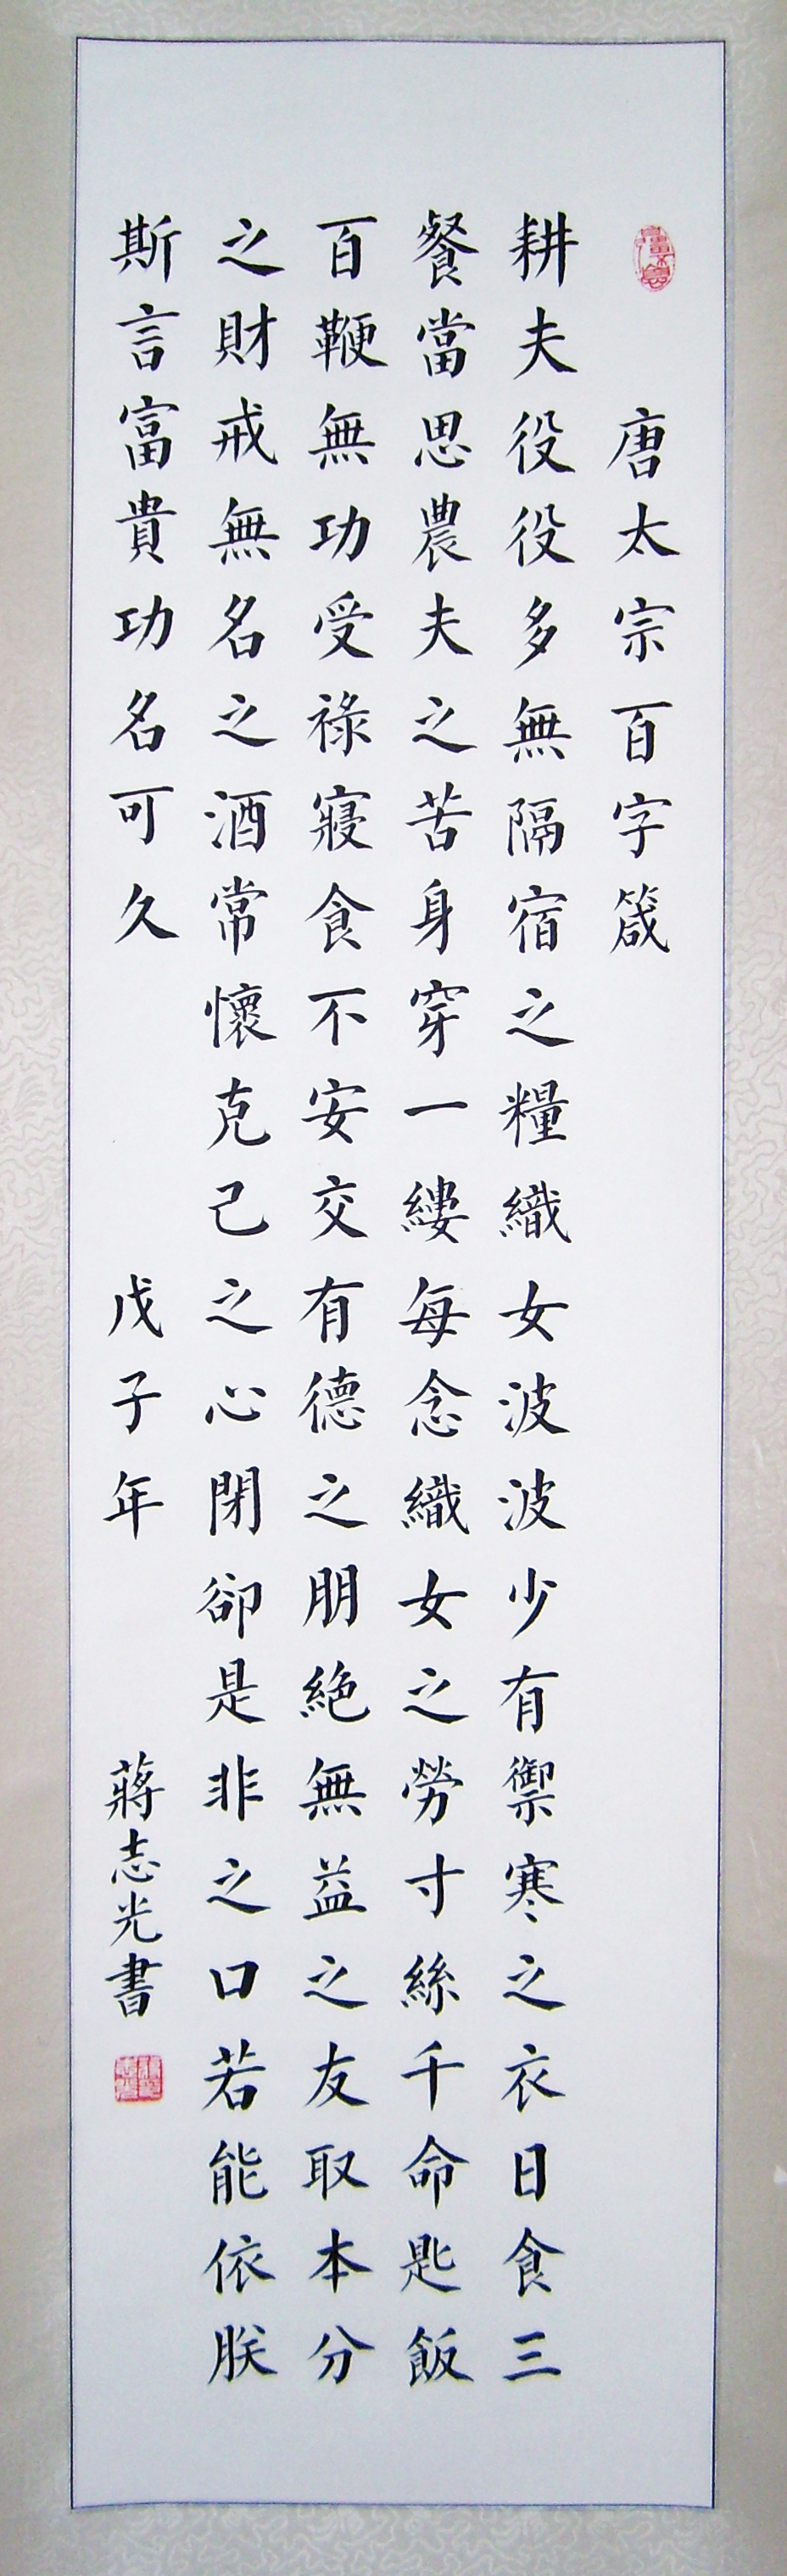 唐太宗百字箴
耕夫役役多無隔宿之糧織女波波少有禦寒之衣日食三
餐當思農夫之苦身穿一縷每念織女之勞寸絲千命匙飯
百鞭無功受祿寢食不安交有德之朋絕無益之友取本分
之財戒無名之酒常懷克己之心閉卻是非之口若能依朕
斯言富貴功名可久
戊子年
蔣志光書